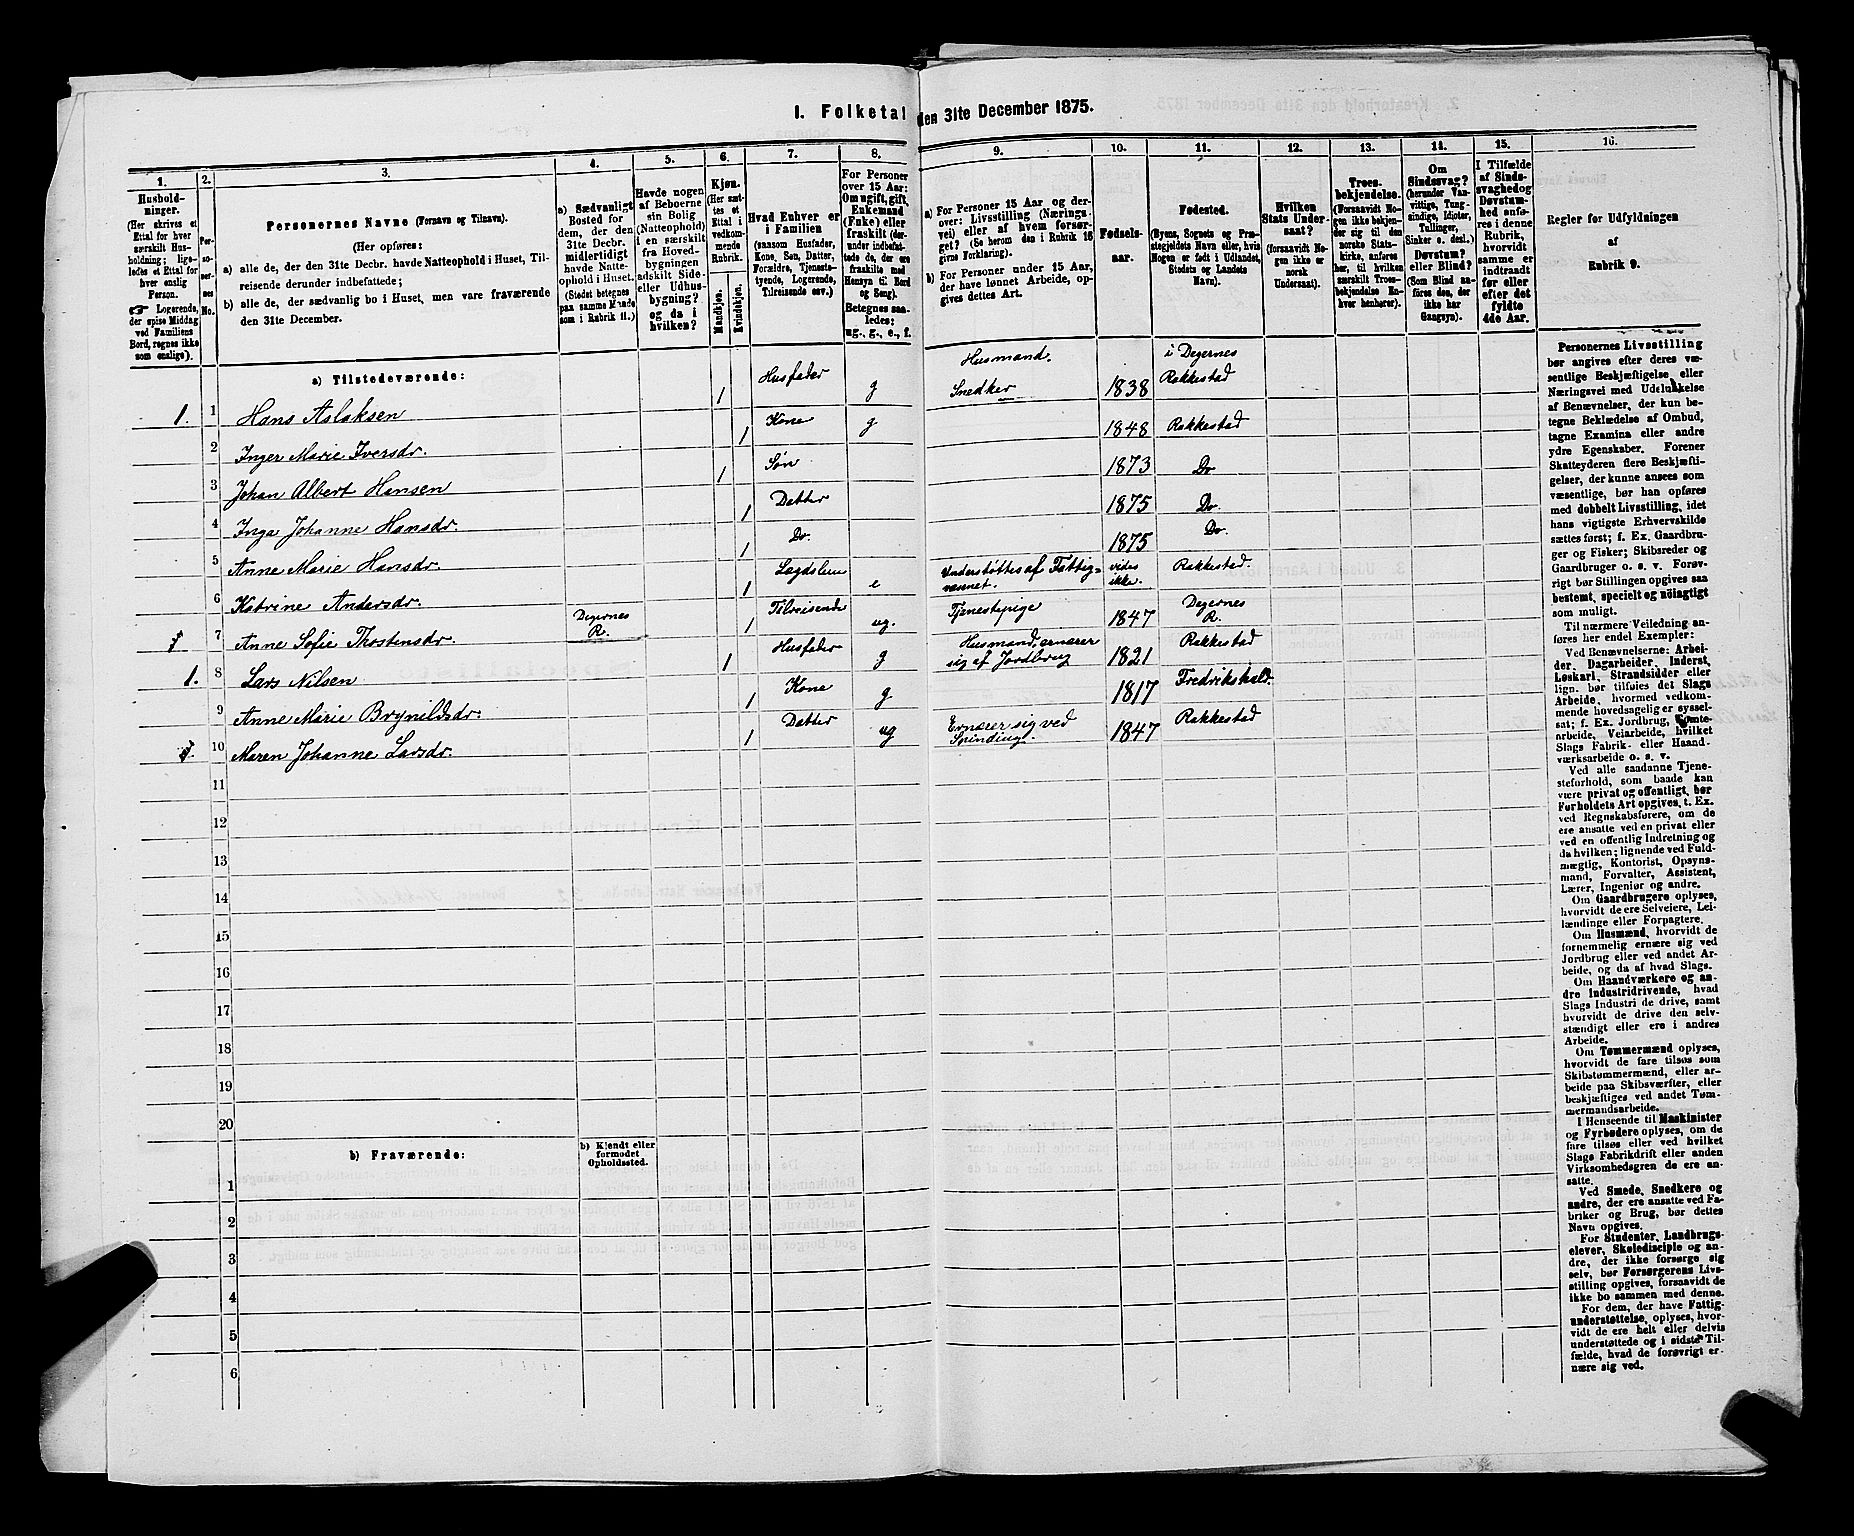 I. Folketal den 31te December 1875.
1. 2. 3. 4. 5. 6. 7. 8. 9. 10. 11. 12. 13. 14. 15. 16.
Husholdninger.
(Her skrives et
Ettal for hver
særskilt Husholdning;
ligeledes et Ettal for
hver enslig
Person.
☞ Logerende,
der spise Middag
ved Familiens
Bord, regnes ikke
som enslige).
Personernes No.
Personernes Navne (Fornavn og Tilnavn).
(Her opføres:
a) alle de, der den 31te Decbr. havde Natteophold i Huset, Tilreisende
derunder indbefattede;
b) alle de, der sædvanlig bo i Huset, men vare fraværende
den 31te December.
a) Sædvanligt
Bosted for
dem, der den
31te Decbr.
midlertidigt
havde Natteophold
i Huset.
(Stedet betegnes
paa samme Maade
som i Rubrik 11.)
Havde nogen
af Beboerne
sin Bolig
(Natteophold)
i en særskilt
fra Hovedbygningen
adskilt Side-
eller Udhusbygning?
og da i
hvilken?
Kjøn.
(Her sættes
et
Ettal i
vedkommende
Rubrik.
Mandkjøn.
Kvindekjøn.
Hvad Enhver er
i Familien
(saasom Husfader,
Kone, Søn, Datter,
Forældre, Tjenestetyende,
Logerende,
Tilreisende osv.)
For Personer
over 15 Aar:
Om ugift, gift,
Enkemand
(Enke) eller
fraskilt (derunder
indbefattede
de, der ere
fraskilte med
Hensyn til Bord
og Seng).
Betegnes saaledes:
ug., g., e., f.
a) For Personer 15 Aar og derover:
Livsstilling (Næringsvei)
eller af hvem forsørget?
(Se herom den i Rubrik 16
givne Forklaring).
b) For Personer under 15 Aar,
der have lønnet Arbeide, opgives
dettes Art.
Fødselsaar.
Fødested.
(Byens, Sognets og Præstegjeldets
Navn eller, hvis
Nogen er født i Udlandet,
Stedets og Landets
Navn).
Hvilken
Stats Undersaat?
(forsaavidt Nogen
ikke er
norsk
Undersaat).
Troesbekjendelse.
(Forsaavidt Nogen
ikke bekjender
sig til den
norske Statskirke,
anføres
her, til hvilken
særskilt Troesbekjendelse
Enhver
henhører).
Om
Sindssvag?
(herunder Vanvittige,
Tungsindige,
Idioter,
Sinker o. desl.)
Døvstum?
eller Blind?
(Som Blind anføres
den, der
ikke har
Gangsyn).
I Tilfælde
af Sindssvaghed
og
Døvstumhed
anføres
i denne
Rubrik,
hvorvidt
samme er
indtraadt
før eller
efter det
fyldte
4de Aar.
Regler for Udfyldningen
af
Rubrik 9.
a) Tilstedeværende:
1. 1 Hans Aslaksen 1 Husfader g Husmand. Snedker 1838 i Degernes Rakkestad
2 Inger Marie Iversdr. 1 Kone g 1848 Rakkestad
3 Johan Albert Hansen 1 Søn 1873 Do
4 Inga Johanne Hansdr. 1 Datter 1875 Do.
5 Anne Marie Hansdr. 1 Do. 1875 Do.
6 Katrine Andersdr. 1 Lægdslem e Understøttes af Fattigvæsenet. vides ikke. Rakkestad.
7 Anne Sofie Thostensdr. Degernes R. 1 Tilreisende ug. Tjenestepige 1847 Degernes R.
1. 8 Lars Nilsen 1 Husfader g Husmand, ernærer sig af Jordbrug 1821 Rakkestad
9 Anne Marie Brynildsdr. 1 Kone g 1817 Fredrikshald.
10 Maren Johanne Larsdr. 1 Datter ug Ernærer sig ved Spinding. 1847 Rakkestad
11
12
13
14
15
16
17
18
19
20
b) Fraværende:
b) Kjendt eller
formodet
Opholdssted.
1
2
3
4
5
6
Personernes Livsstilling
bør angives efter deres væsentlige
Beskjæftigelse eller
Næringsvei med Udelukkelse
af Benævnelser, der kun betegne
Beklædelse af Ombud,
tagne Examina eller andre
ydre Egenskaber. Forener
Skatteyderen flere Beskjæftigelser,
der kunne ansees som
væsentlige, bør han opføres
med dobbelt Livsstilling, idet
hans vigtigste Erhvervskilde
sættes først; f. Ex. Gaardbruger
og Fisker; Skibsreder og
Gaardbruger o. s. v. Forøvrigt
bør Stillingen opgives saa
bestemt, specielt og nøiagtigt
som muligt.
Til nærmere Veiledning anføres
her endel Exempler:
Ved Benævnelserne: Arbeider,
Dagarbeider, Inderst,
Løskarl, Strandsidder eller
lign. bør tilføies det Slags
Arbeide, hvormed vedkommende
hovedsagelig er sysselsat;
f. Ex. Jordbrug, Tomtearbeide,
Veiarbeide, hvilket
Slags Fabrik- eller Haandværksarbeide
o. s. v.
Ved alle saadanne Tjenesteforhold,
som baade kan
være privat og offentligt, bør
Forholdets Art opgives, t. Ex.
ved Regnskabsførere, om de
ere ansatte ved en privat eller
ved en offentlig Indretning og
da hvilken; lignende ved Fuldmægtig,
Kontorist, Opsynsmand,
Forvalter, Assistent,
Lærer, Ingeniør og andre.
Om Gaardbrugere oplyses,
hvorvidt de ere Selveiere, Leilændinge
eller Forpagtere.
Om Husmænd, hvorvidt de
fornemmelig ernære sig ved
Jordbrug eller ved andet Arbeide,
og da af hvad Slags.
Om Haandværkere og andre
Industridrivende, hvad
Slags Industri de drive, samt
hvorvidt de drive den selvstændigt
eller ere i andres
Arbeide.
Om Tømmermænd oplyses,
hvorvidt de fare tilsøs som
Skibstømmermænd, eller arbeide
paa Skibsværfter, eller
beskjæftiges ved andet Tømmermandsarbeide.
I Henseende til Maskinister
og Fyrbødere oplyses, om de
fare tilsøs eller ved hvilket
Slags Fabrikdrift eller anden
Virksomhedsgren de ere ansatte.
Ved Smede, Snedkere og
andre, der ere ansatte ved Fabriker
og Brug, bør dettes
Navn opgives.
For Studenter, Landbrugselever,
Skoledisciple og andre,
der ikke forsørge sig
selv, bør Forsørgerens Livsstilling
opgives, forsaavidt de
ikke bo sammen med denne.
For dem, der have Fattigunderstøttelse,
oplyses, hvorvidt
de ere helt eller delvis
understøttede og i sidste Tilfælde,
hvad de forøvrigt ernære
sig ved.